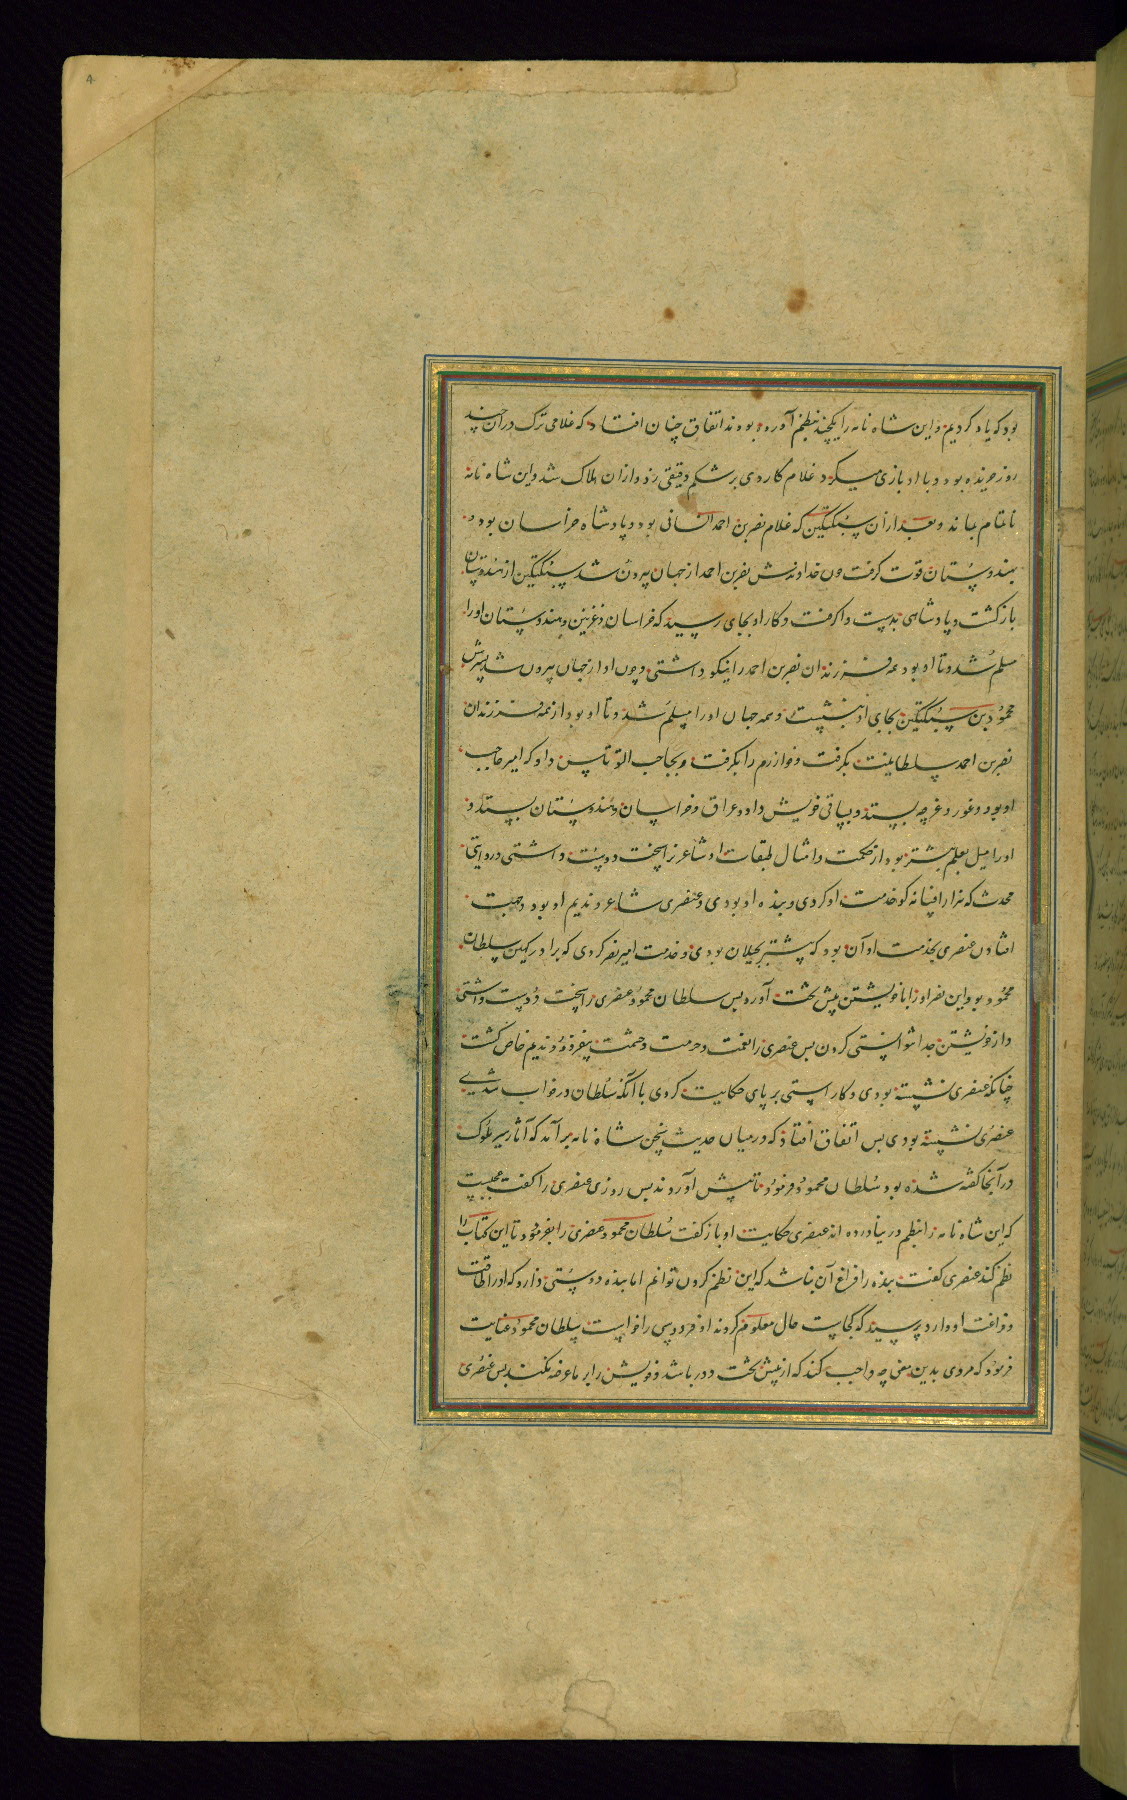 4
بود که یاد کردیم و این شاه نامه را یکچند بنظم آورده بودند اتفاق چنان افتاد که غلامی ترک در آن چند
روز خریده بود و با او بازی میکرد غلام کاردی بر شکم دقیقی زد و از آن هلاک شد و این شاه نامه
ناتمام بماند و بعد از آن سبکتکین که غلام نصر بن احمد السامانی بود و پادشاه خراسان بود و
بهندوستان قوت گرفت چون خداوندش نصر بن احمد از جهان بیرون شد سبکتکین از هندوستان
باز گشت و پادشاهی بدست وا گرفت و کار او بجای رسید که خراسان و غزنین و هندوستان او را
مسلم شد و تا او بود همه فرزندان نصر بن احمد را نیکو داشتی و چون او از جهان بیرون شد پسرش
محمود بن سبکتکین بجای او بنشست و همه جهان او را مسلم شد و تا او بود از همه فرزندان
نصر بن احمد سلطاینت بگرفت و خوارزم را بگرفت و بحاجب التوتاس داد که امیر حاجب
او بود و غور و غرچه بستد و بساتی خویش داد و عراق و خراسان و هندوستان بستد و
او را میل بعلم بیشتر بود از حکمت و امثال طبقات او شاعر را سخت دوست داشتی و روایتی
محدث که هزار افسانه کو خدمت او کردی و بنده او بودی و عنصری شاعر و ندیم او بود و جهت
افتادن عنصری بخدمت او آن بود که پیشتر بجیلان بودی و خدمت امیر نصر کردی که برادر کهین سلطان
محمود بود این نصر او را با خویشتن پیش تخت آورد پس سلطان محمود عنصری را سخت دوست داشتی
و از خویشتن جدا نتوانستی کردن پس عنصری را نعمت و حرمت و حشمت بیفزود و ندیم خاص گشت
چنانکه عنصری نشسته بودی و کاراستی بر پای حکایت کردی تا آنگه سلطان در خواب شدی
عنصری نشسته بودی پس اتفاق افتاد که در میان حدیث سخن شاه نامه بر آمد که آثار سیر ملوک
در آنجا گفته شده بود سلطان محمود فرمود تا پیش آوردند پس روزی عنصری را گفت عجبست
که این شاه نامه را بنظم در نیاورده اند عنصری حکایت او باز گفت سلطان محمود عنصری را بفرمود تا این کتاب را
نظم کند عنصری گفت بنده را فراغ آن نباشد که این نظم کردن توانم اما بنده دوستی دارد که او را طاقت
و فراغت او وارد پرسید که کجاست حال معلوم کردند او فردوسی را خواست سلطان محمود عنایت
فرمود که مردی بدین معنی چه واجب کند که از پیش تخت دور باشد و خویش را بر ما عرضه نکند پس عنصری